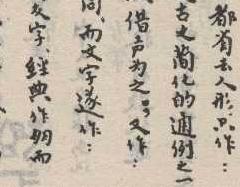 都省去人形只作：
古文简化的通例之一
借声为之
又作：
同，而文字遂作：
文字、经典作朔而